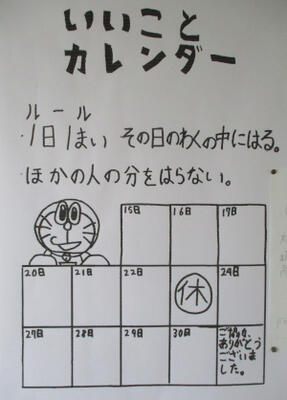 いいこと
カレンダー
ルール
1日1まい その日のわくの中にはる。
ほかの人の分をはらない。
15日 16日 17日
20日 21日 22日 休 24日
27日 28日 29日 30日 ご協力、
ありがとう
ございま
した。